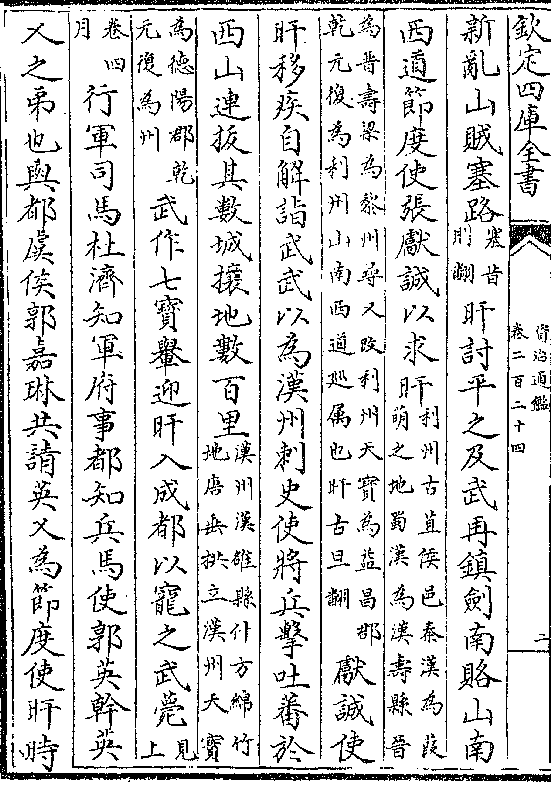 欽定四庫全書
資治通鑑
卷二百二十四
二
新亂山賊塞路塞昔則翻旰討平之及武再鎮劍南賂山南
西道節度使張獻誠以求旰利州古苴侯邑秦漢為葭萌之地蜀漢為漢壽縣晉
為晉壽梁為黎州尋又改利州天寶為益昌郡乾元復為利州山南西道巡属也旰古旦翻獻誠使
旰移疾自解詣武武以為漢州刺史使將兵擊吐蕃於
西山連拔其數城攘地數百里漢州漢雒縣什方綿竹地唐垂拱立漢州天寶
為德陽郡乾元復為州武作七寶轝迎旰入成都以寵之武薨見上
卷四月行軍司馬杜濟知軍府事都知兵馬使郭英幹英
乂之弟也與都虞侯郭嘉琳共請英乂為節度使旰時